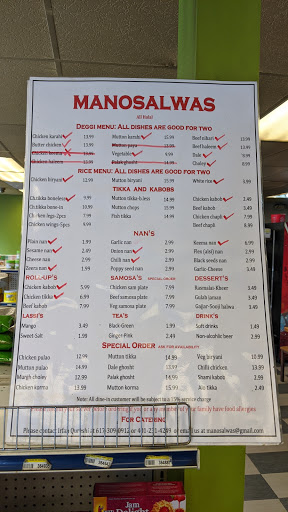 MANOSALWAS
All Halal
DEGGI MENU: ALL DISHES ARE GOOD FOR TWO
Chicken karahi 13.99 Mutton karahi 15.99 Beef nihari 13.99
Butter chicken 13.99 Mutton paya 12.99 Beef haleem 13.99
Chicken korma 13.99 Vegetable 9.99 Dale 9.99
Chicken haleem 12.99 Palak ghosht 14.99 Choley 8.99
RICE MENU: ALL DISHES ARE GOOD FOR TWO
Chicken biryani 12.99 Mutton biryani 14.99 White rice 3.99
TIKKA AND KABOBS
Ch.tikka boneless 9.99 Mutton tikka-b.less 14.99 Chicken kabob 4.99
Ch.tikka bone-in 10.99 Mutton chops 15.99 Beef kabob 3.49
Chicken legs-2pcs 7.99 Fish tikka 14.99 Chicken chapli 7.99
Chicken wings-5pcs 9.99 Beef chapli 8.99
NAN'S
Plain nan 1.99 Garlic nan 2.99 Keema nan 6.99
Sesame nan 2.49 Onion nan 2.99 Flex (alsi) nan 2.99
Cheese nan 2.99 Chilli nan 2.99 Black seeds nan 2.99
Zeera nan 1.99 Poppy seed nan 2.99 Garlic-Cheese 3.49
ROLL-UP'S SAMOSA'S DESSERT'S
Chicken kabob 5.99 Chicken sam plate 7.99 Rasmalai-Kheer 3.49
Chicken tikka 6.99 Beef samosa plate 7.99 Gulab Jaman 3.49
Beef kabob 7.99 Veg samosa plate 6.99 Gajar-Sooji halwa 3.49
LASSI'S TEA'S DRINK'S
Mango 3.49 Black-Green 1.99 Soft drinks 1.49
Sweet-Salt 1.99 Ginger-Pink 2.49 Non-alcoholic beer 2.99
SPECIAL ORDER ASK FOR AVAILABILITY
Chicken pulao 12.99 Mutton tikka 14.99 Veg biryani 10.99
Mutton pulao 14.99 Dale ghosht 13.99 Chilli chicken 13.99
Murgh choley 12.99 Palak ghosht 14.99 Shami kabob 2.99
Chicken korma 13.99 Mutton korma 15.99 Alo tikka 2.49
Note: All dine-in customer will be subject to a 15% service charge
FOR CATERING
Please contact: Irfan Qureshi at 617-309-0912 or 401-231-4249 or email us at manosalwas@gmail.com
Jam
Delight